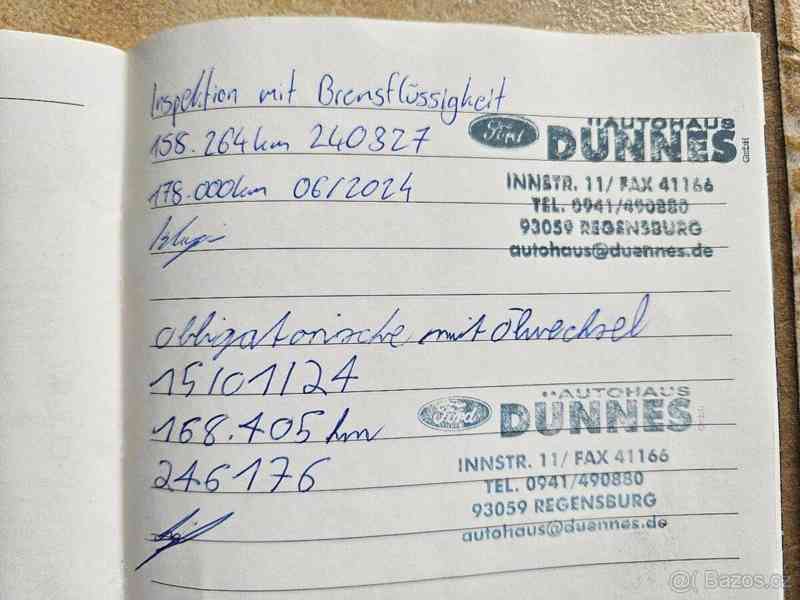 Inspektion mit Bremsflüssigkeit
158.264km 240327
178.000km 06/2024
Ford
AUTOHAUS
DÜNNES GmbH
INNSTR. 11/ FAX 41166
TEL. 0941/490880
93059 REGENSBURG
autohaus@duennes.de
obligatorische mit Ölwechsel
15/01/24
168.405 km
246176
Ford
AUTOHAUS
DÜNNES GmbH
INNSTR. 11/ FAX 41166
TEL. 0941/490880
93059 REGENSBURG
autohaus@duennes.de
@( Bazos.cz